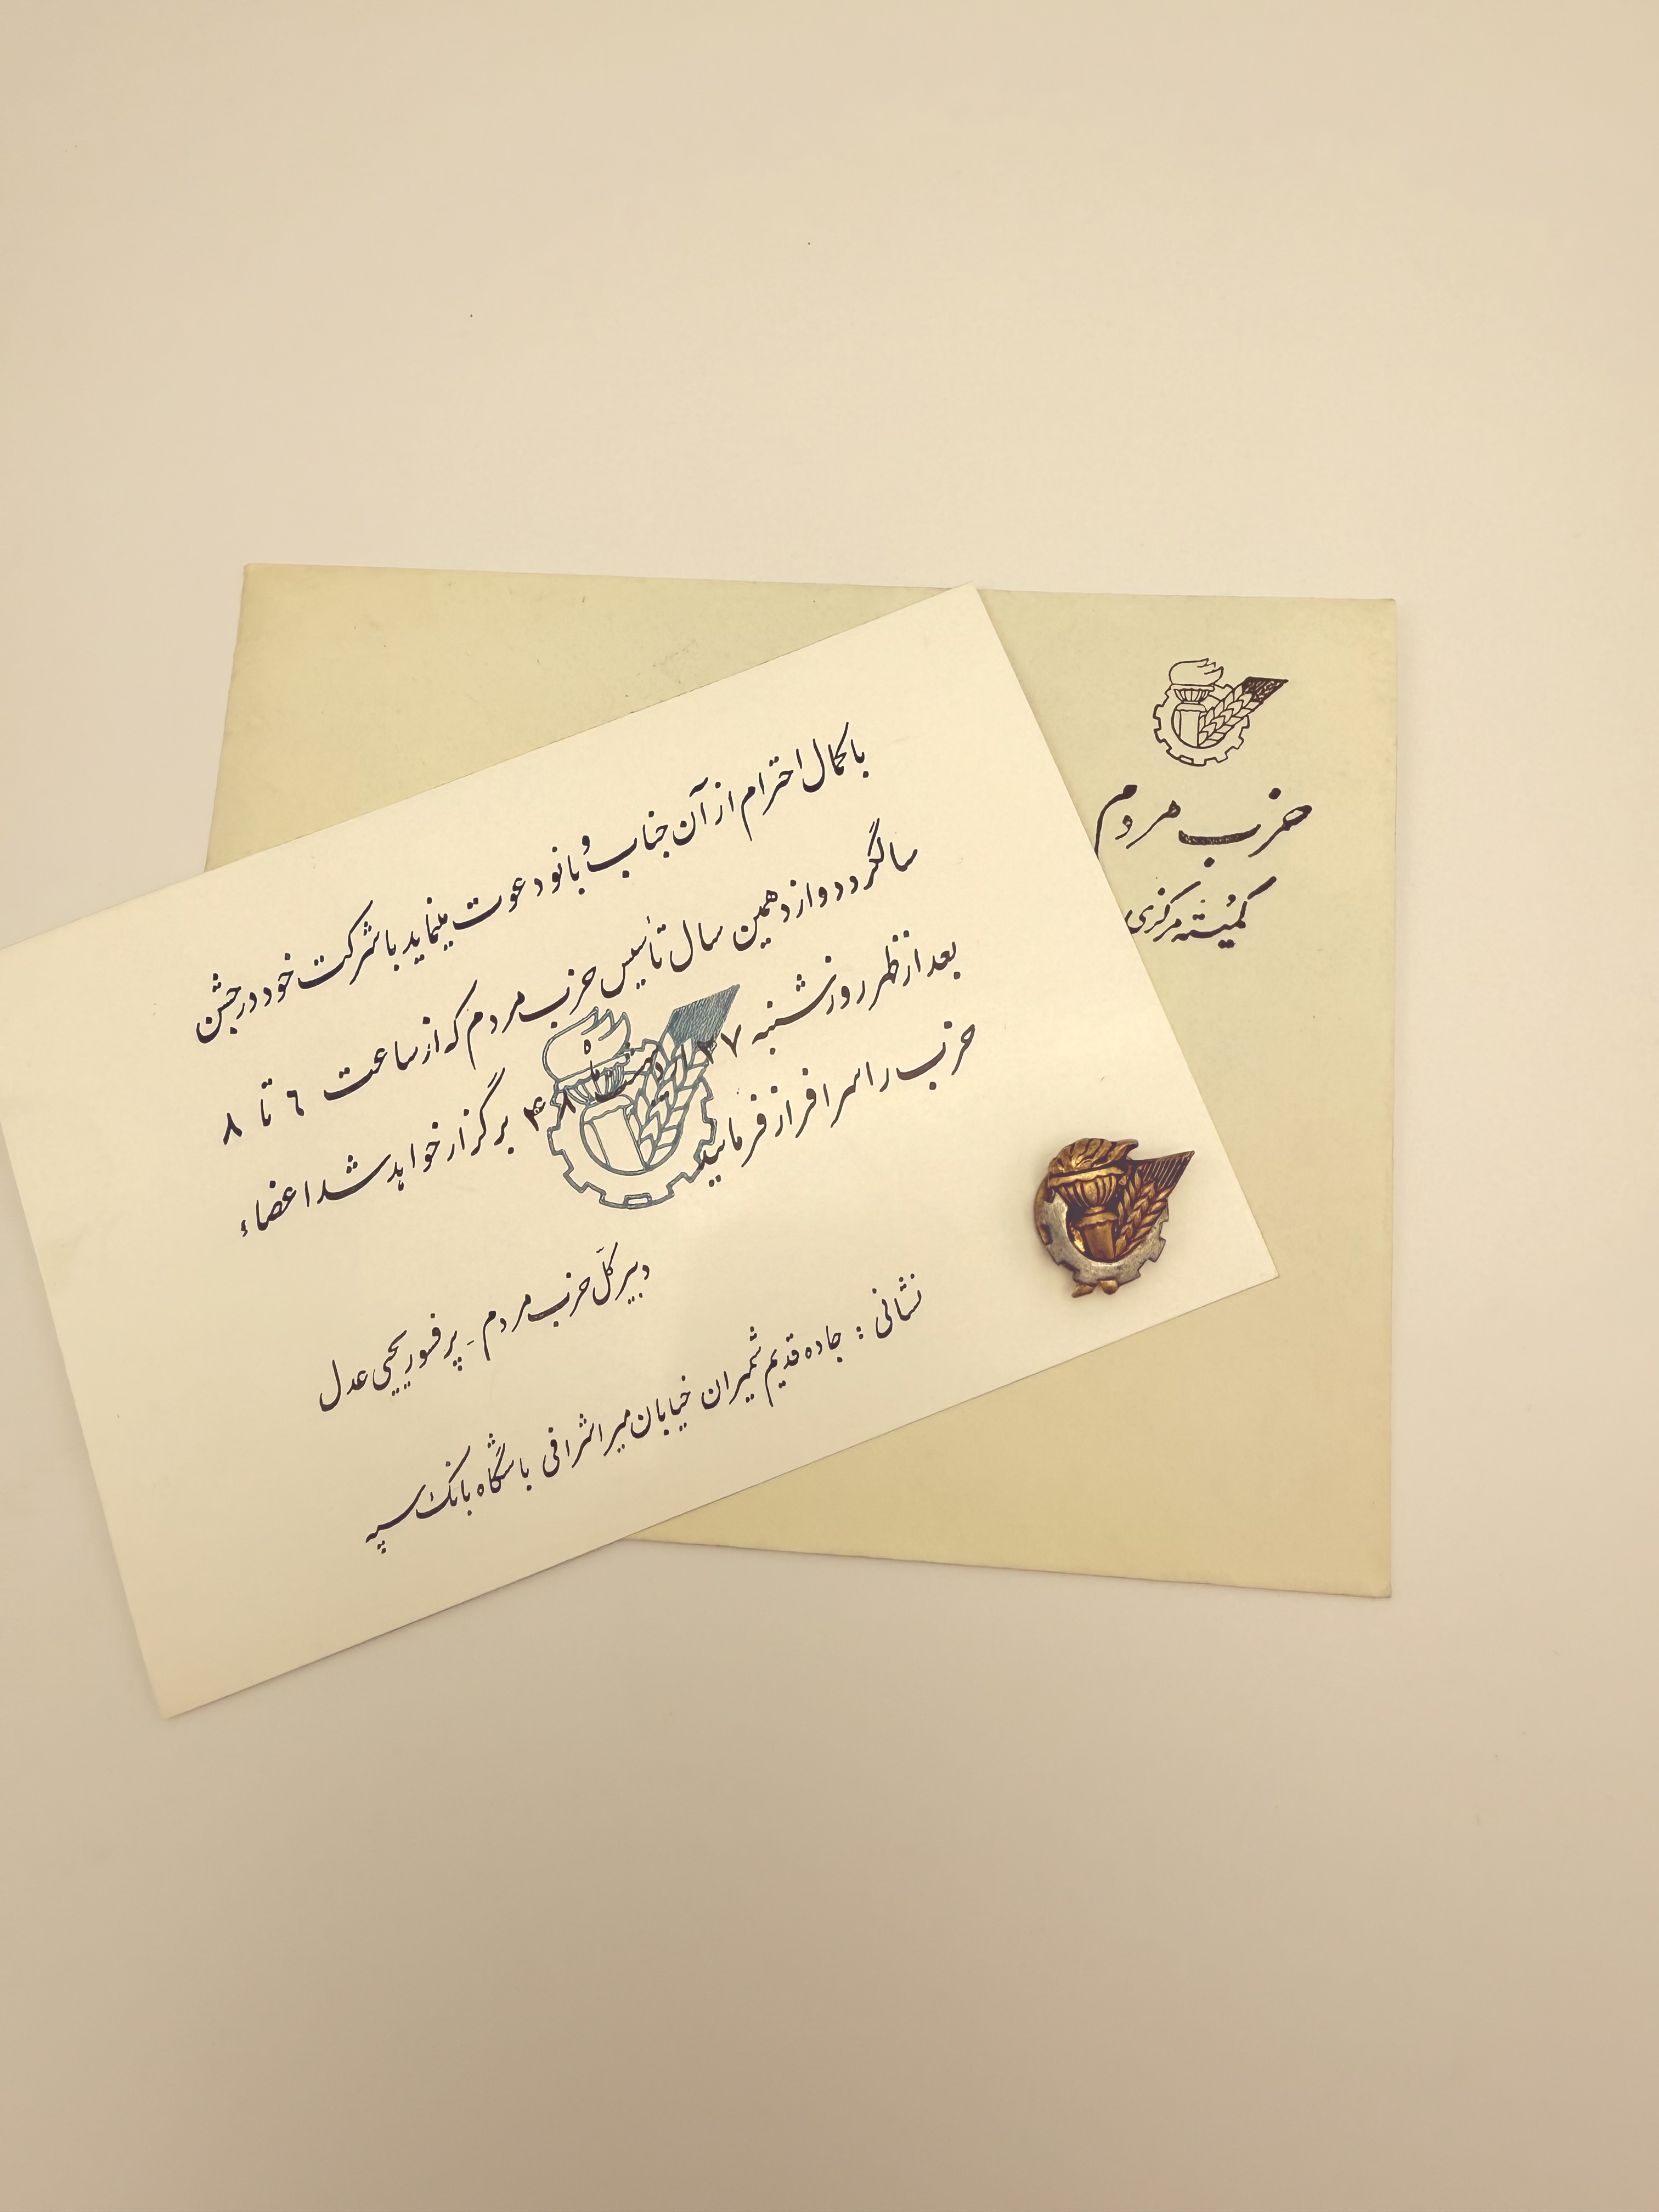 حزب مردم
کمیته مرکزی
با کمال احترام از آن جناب و بانو دعوت مینماید با شرکت خود در جشن
سالگرد دوازدهمین سال تأسیس حزب مردم که از ساعت ٦ تا ۸
بعد از ظهر روز شنبه ۲۷ اردیبهشت ماه ۴۸ برگزار خواهد شد اعضاء
حزب را سرافراز فرمایید
دبیر کلّ حزب مردم - پرفسور یحیی عدل
نشانی : جاده قدیم شمیران خیابان میراشرافی باشگاه بانک سپه